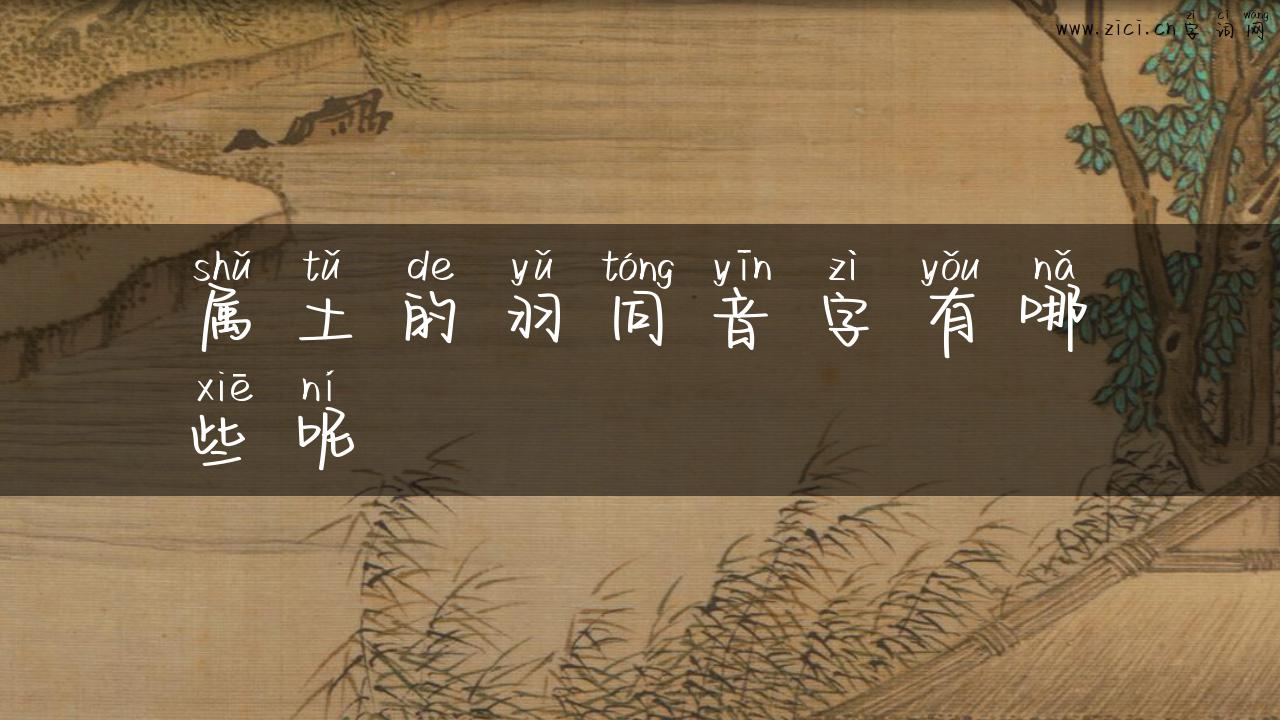 zì cí wǎng
www.zici.cn 字词网
shǔ tǔ de yǔ tóng yīn zì yǒu nǎ
属土的羽同音字有哪
xiē ní
些呢